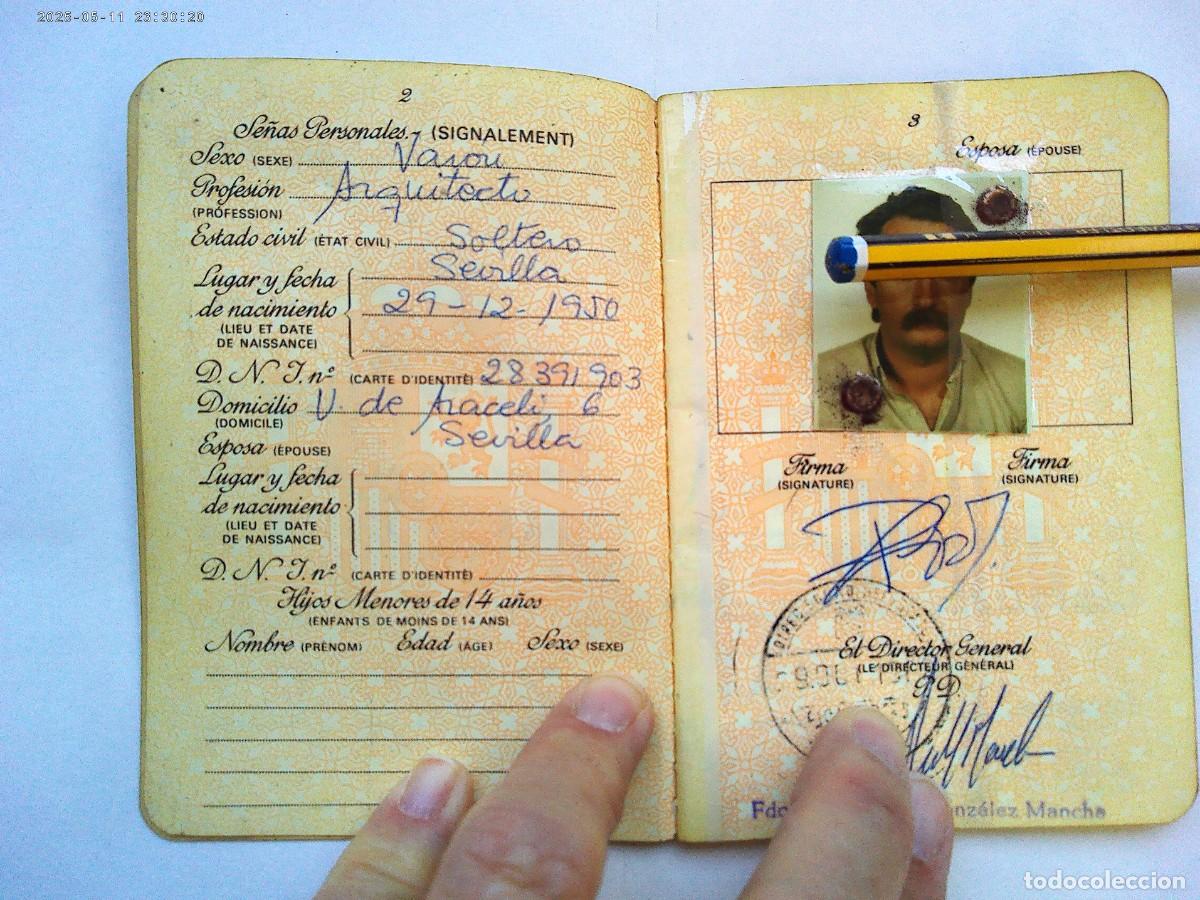 2025-05-11 23:30:20
2
Señas Personales.- (SIGNALEMENT)
Sexo (SEXE) Varón
Profesión Arquitecto
(PROFESSION)
Estado civil (ÉTAT CIVIL) Soltero
Lugar y fecha Sevilla
de nacimiento 29-12-1950
(LIEU ET DATE
DE NAISSANCE)
D. N. I. nº (CARTE D'IDENTITÉ) 28391903
Domicilio V. de Araceli, 6
(DOMICILE) Sevilla
Esposa (ÉPOUSE)
Lugar y fecha
de nacimiento
(LIEU ET DATE
DE NAISSANCE)
D. N. I. nº (CARTE D'IDENTITÉ)
Hijos Menores de 14 años
(ENFANTS DE MOINS DE 14 ANS)
Nombre (PRÉNOM) Edad (ÂGE) Sexo (SEXE)
3
Esposa (ÉPOUSE)
Firma Firma
(SIGNATURE) (SIGNATURE)
El Director General
(LE DIRECTEUR GÉNÉRAL)
P.D.
nzález Mancha
todocoleccion